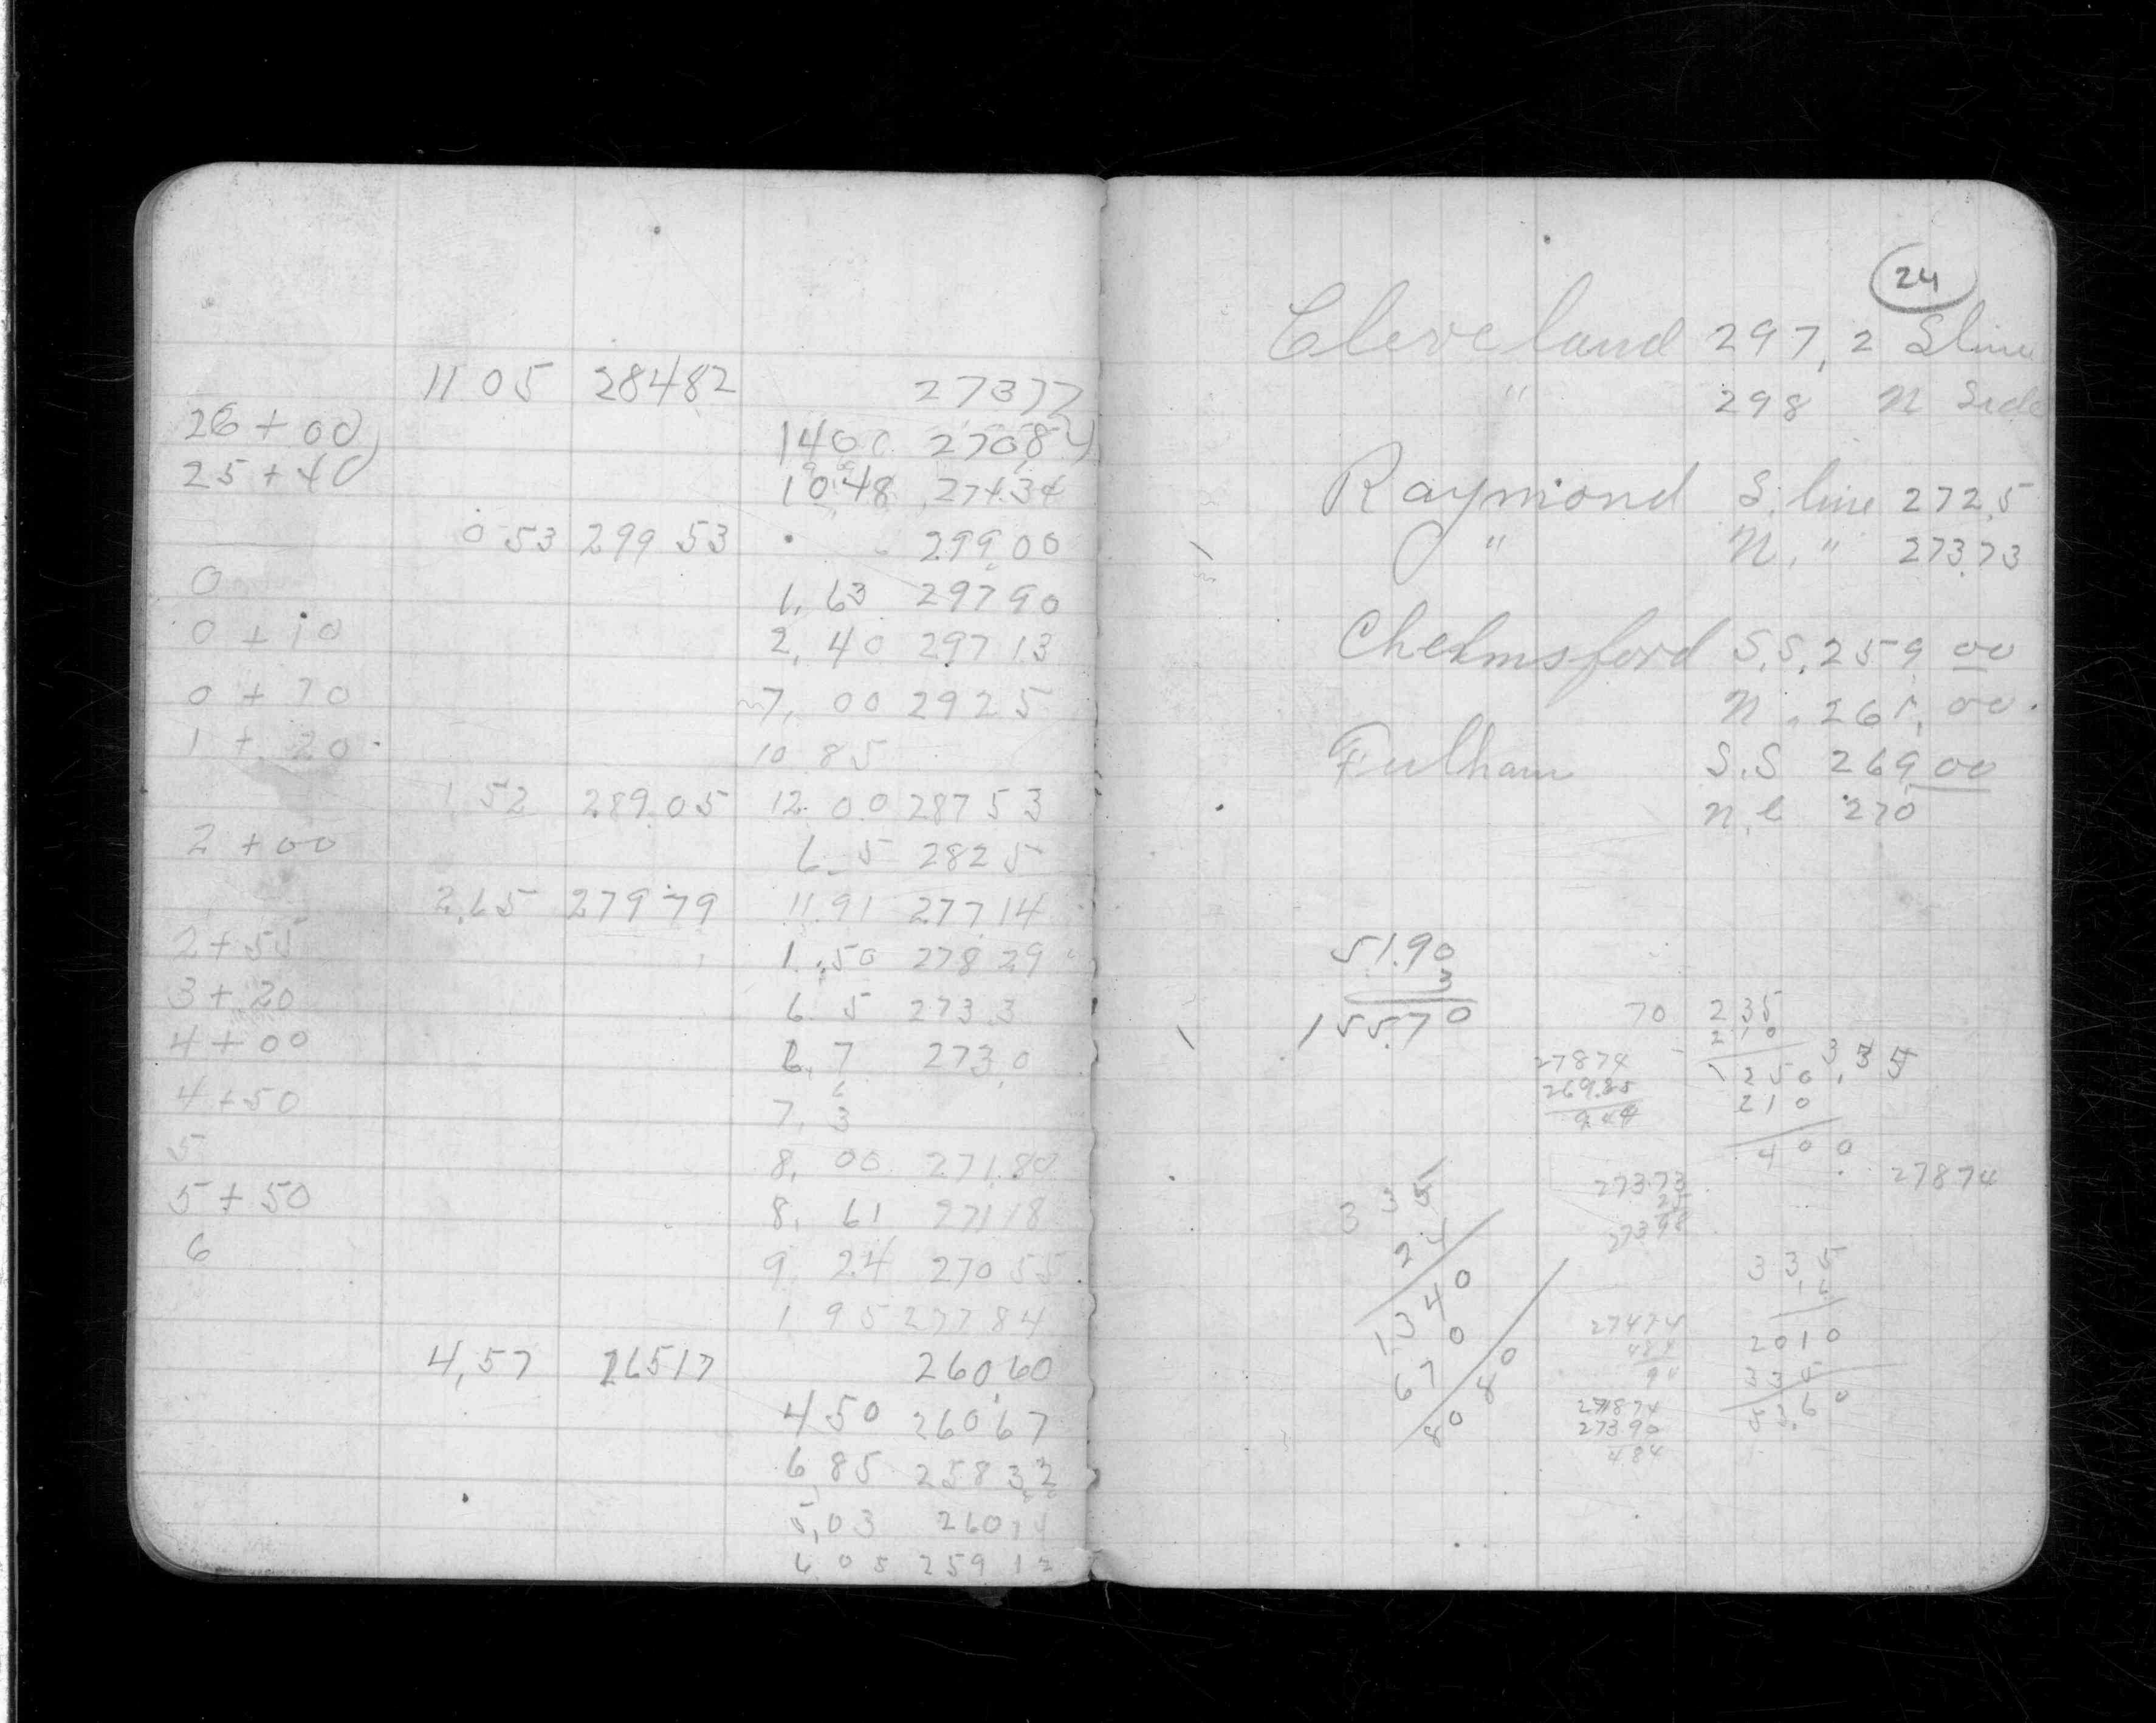 11 05 284 82 273 77
26 + 00 14 00 270 82
25 + 40 10 48 274 34
0 53 299 53 299 00
0 1, 63 297 90
0 + 10 2, 40 297 13
0 + 70 7, 00 292 5
1 + 20 10 85
1 52 289.05 12 00 287 53
2 + 00 6 5 282 5
2,65 279 79 11 91 277 14
2 + 55 1 50 278 29
3 + 20 6 5 273 3
4 + 00 6, 7 273,0
4 + 50 7, 3
5 8, 00 271.80
5 + 50 8, 61 271 18
6 9 24 270 55
1 95 277 84
4,57 265 17 260 60
4 50 260 67
6 85 258 32
5,03 260 14
6 05 259 12
24
Cleveland 297,2 S line
" 298 N Side
Raymond S. line 272,5
" N. " 273.73
Chelmsford S.S. 259 00
N. 261,00
Fulham S.S 269 00
N.l 270
51.90
3
155.70
70 235
210
250
210
400
3,35
278 74
269.85
9.44
278 74
273.73
25
273 98
335
24
1340
670
8080
33,5
1,6
2010
335
53,60
274 74
484
94
278 74
273 90
484